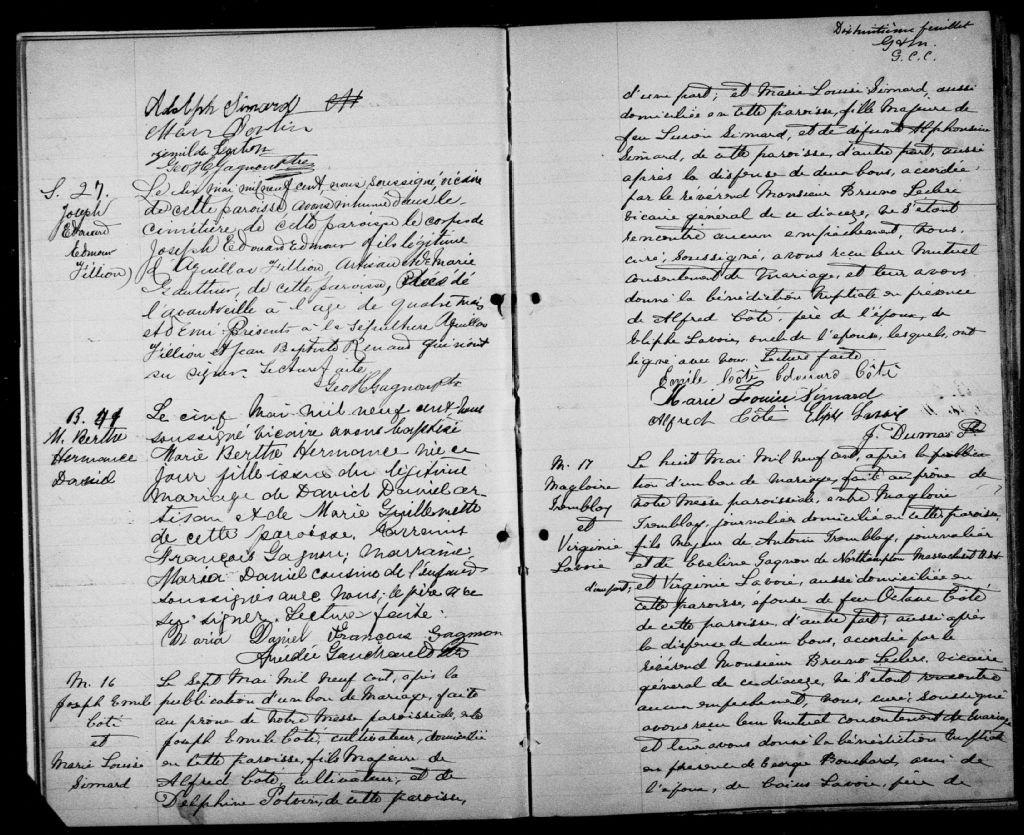 Adolph Simard
Geo H Gagnon Ptre
S. 27.
Joseph
Edouard
Edmour
Fillion
Le six mai mil neuf cent, nous soussigné vicaire
de cette paroisse avons inhumé dans le
cimetière de cette paroisse le corps de
Joseph Edouard Edmour fils légitime
d'Aguillas Fillion, Artisan et de Marie
Gauthier, de cette paroisse, décédé
l'avantveille à l'âge de quatre mois
et demi. Présents à la sépulture Aguillas
Fillion et Jean Baptiste Renaud qui n'ont
su signer. Lecture faite
Geo H Gagnon Ptr
B. 41
M. Berthe
Hermance
Daniel
Le cinq Mai mil neuf cent nous
soussigné vicaire avons baptisé
Marie Berthe Hermance née ce
jour fille issue du légitime
mariage de David Daniel ar-
tisan et de Marie Guillemette
de cette paroisse. Parrain
François Gagnon, Marraine
Maria Daniel cousine de l'enfant
soussignés avec nous; le père n'a
su signer. Lecture faite.
Maria Daniel François Gagnon
M. 16
Joseph Emile
Coté
et
Marie Louise
Simard
Le Sept Mai Mil neuf cent, après la
publication d'un ban de Mariage, faite
au prône de notre Messe paroissiale, entre
Joseph Emile Coté, cultivateur, domicilié
en cette paroisse, fils Majeur de
Alfred Coté, cultivateur, et de
Delphine Potvin, de cette paroisse,
Dixhuitième feuillet
G.C.C.
d'une part; et Marie Louise Simard, aussi
domiciliée en cette paroisse, fille Majeure de
feu Simard, et de défunte Alphonsine
Simard, de cette paroisse, d'autre part, aussi
après la dispense de deux bans, accordée
par le révérend Monsieur Bruno Leclerc
vicaire général de ce diocèze, ne S'étant
rencontré aucun empêchement, Nous,
curé, soussigné, avons reçu leur Mutuel
consentement de Mariage, et leur avons
donné la bénédiction Nuptiale en présence
de Alfred Coté, père de l'époux, de
Elzphe Lavoie, oncle de l'épouse, lesquels ont
signé avec nous. Lecture faite
Emile Coté Edouard Côté
Marie Louise Simard
Alfred Côté
J. Dumas Ptr
M. 17
Magloire
Tremblay
et
Virginie
Lavoie
Le huit Mai Mil neuf cent, après la publica-
tion d'un ban de mariage, fait au prône de
notre Messe paroissiale, entre Magloire
Tremblay, journalier domicilié en cette paroisse,
fils Majeur de Antoine Tremblay, journalier
et de Eveline Gagnon de Northampton Massachusetts
d'une part; et Virginie Lavoie, aussi domiciliée en
cette paroisse, épouse de feu Octave Coté
de cette paroisse, d'autre part; aussi après
la dispense de deux bans, accordée par le
révérend Monsieur Bruno Leclerc, vicaire
général de ce diocèze, ne S'étant rencontré
aucun empêchement, nous, curé, soussigné
avons reçu leur Mutuel consentement de mariage
et leur avons donné la bénédiction Nuptiale
en présence de George Bouchard, ami de
l'époux, de Lavoie, père de